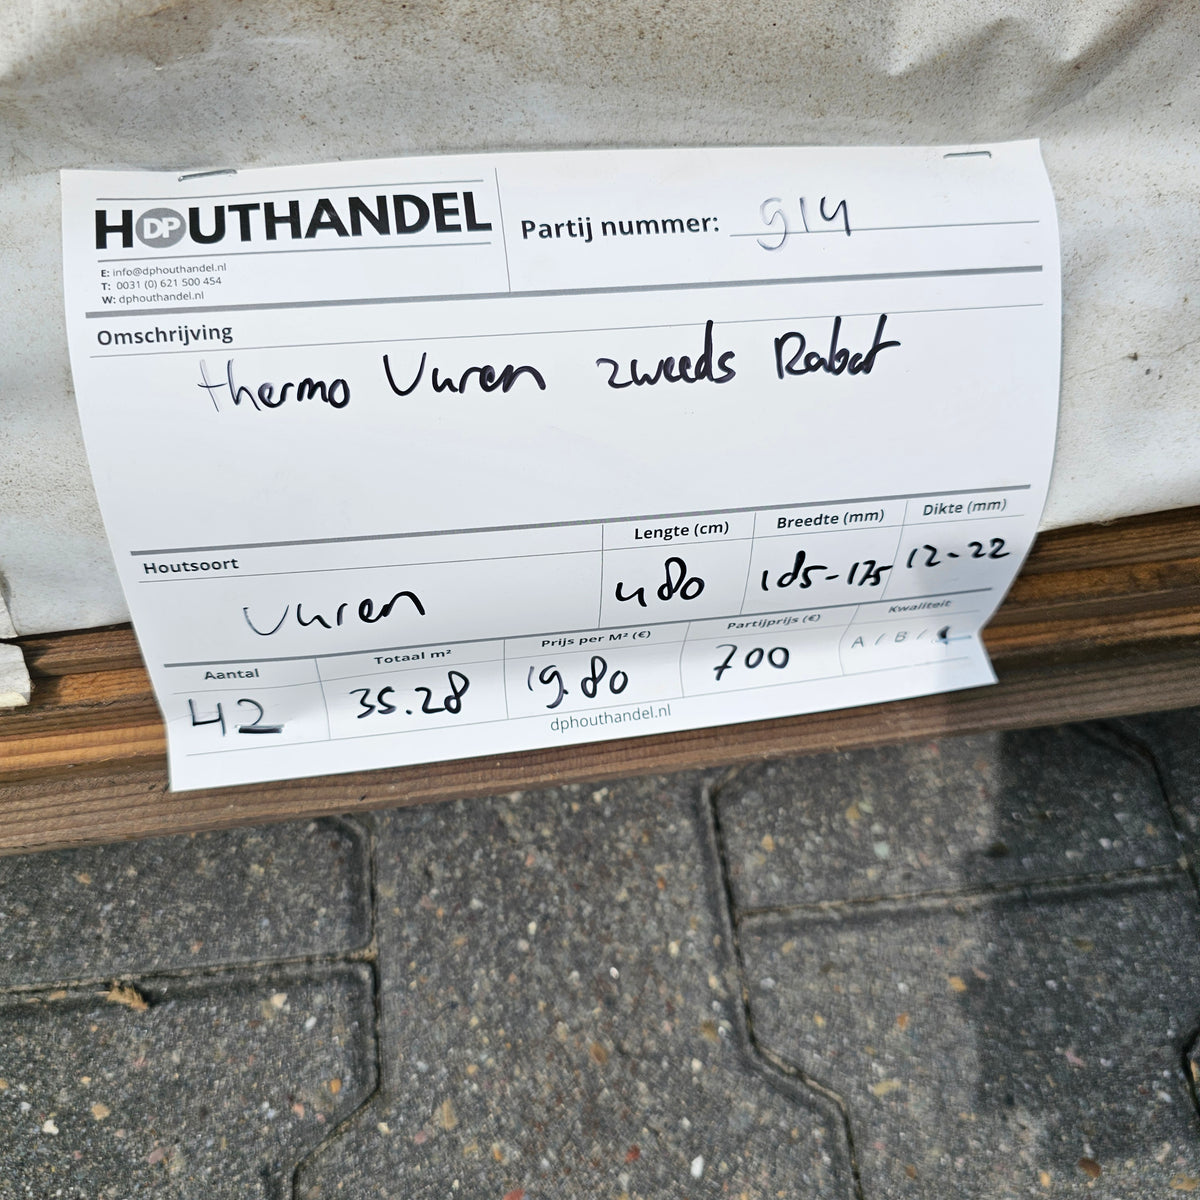 HOUTHANDEL
DP
E: info@dphouthandel.nl
T: 0031 (0) 621 500 454
W: dphouthandel.nl
Partij nummer: 914
Omschrijving
thermo Vuren zweeds Rabat
Houtsoort
Lengte (cm)
Breedte (mm)
Dikte (mm)
Vuren
480
185-175
12-22
Aantal
Totaal m²
Prijs per M² (€)
Partijprijs (€)
Kwaliteit
42
35.28
19.80
700
A / B /
dphouthandel.nl